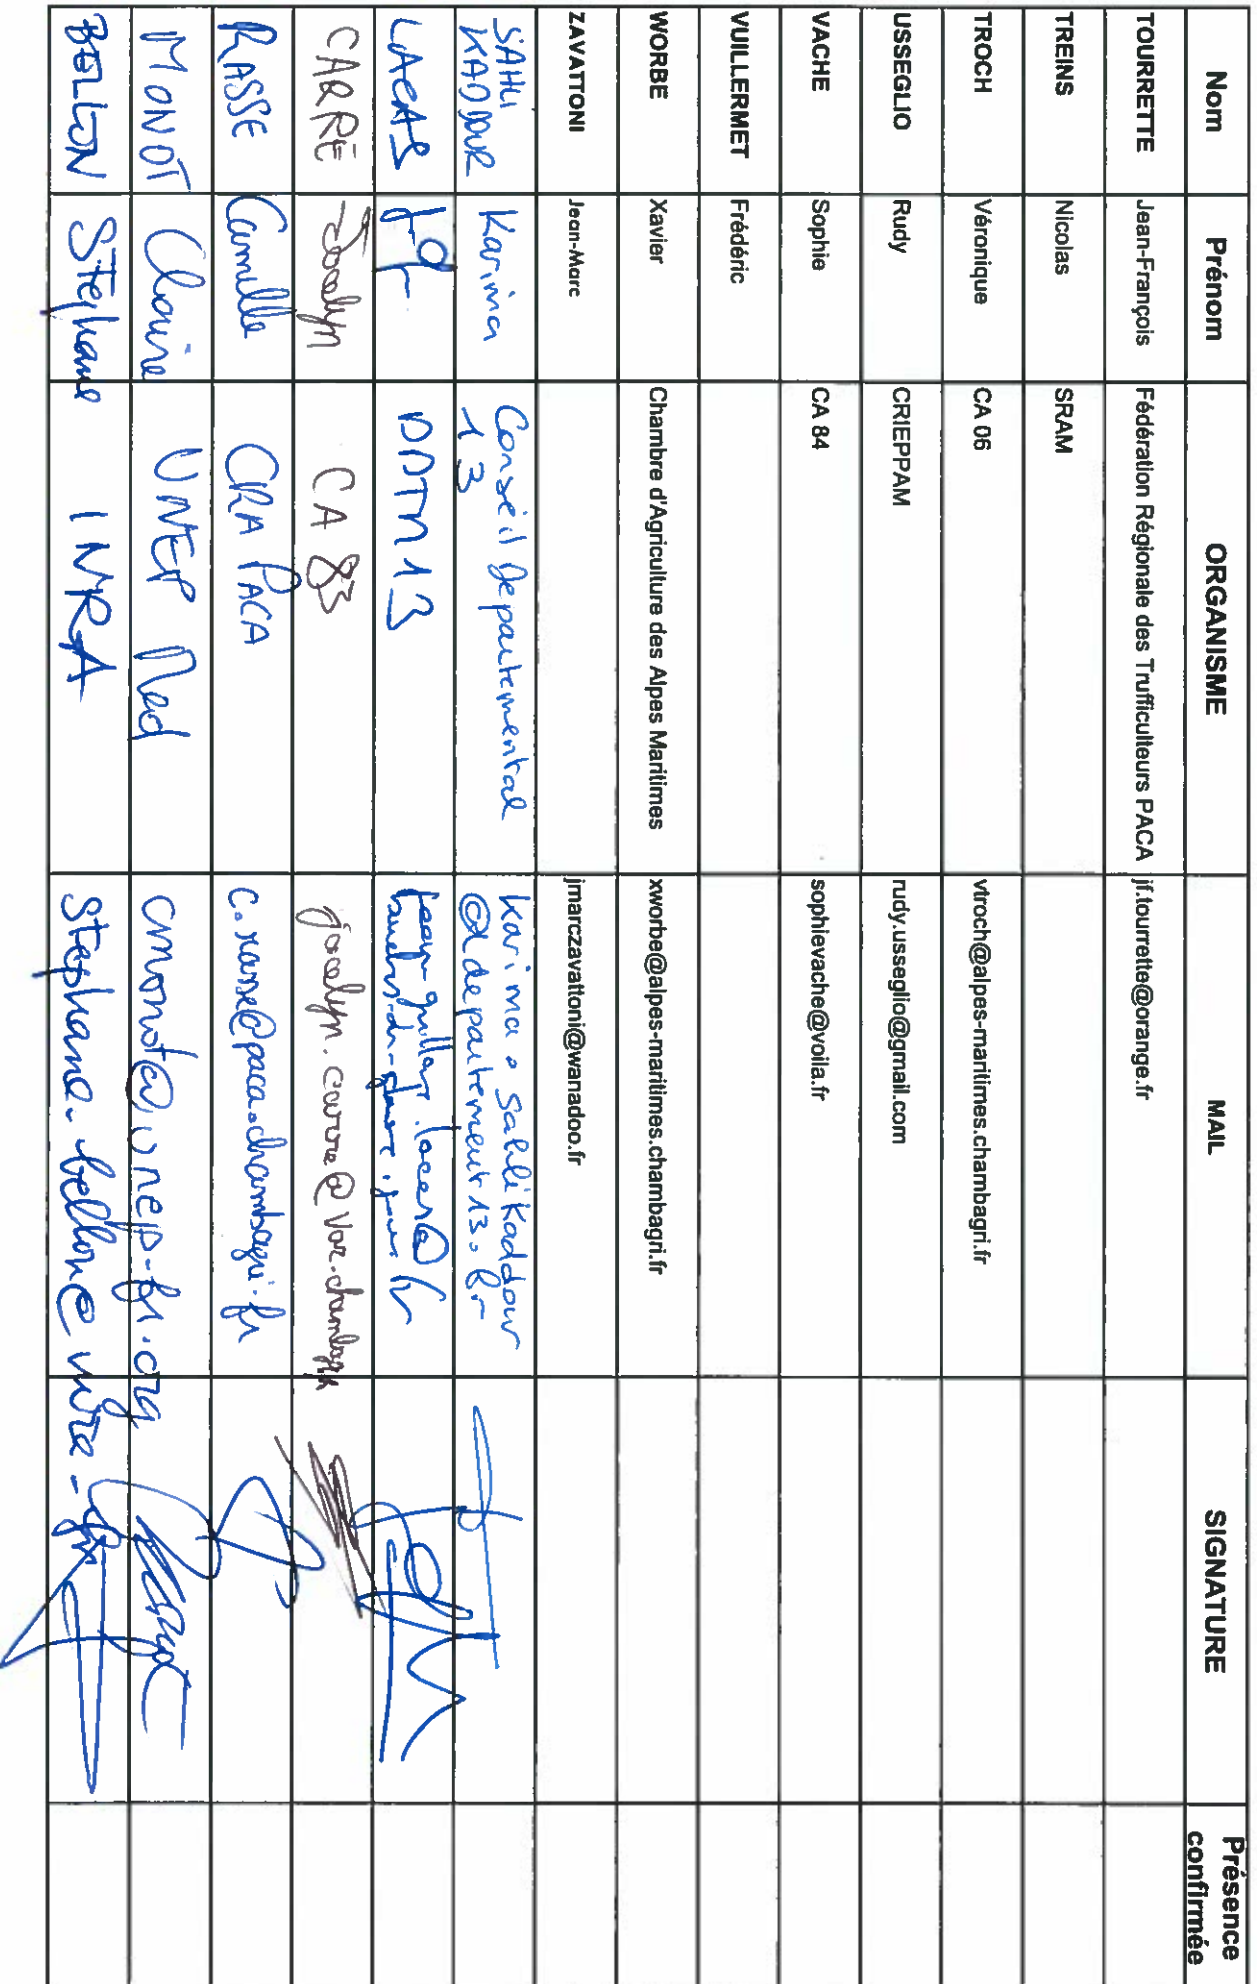 Nom Prénom ORGANISME MAIL SIGNATURE Présence confirmée
TOURRETTE Jean-François Fédération Régionale des Trufficulteurs PACA jf.tourrette@orange.fr
TREINS Nicolas SRAM
TROCH Véronique CA 06 vtroch@alpes-maritimes.chambagri.fr
USSEGLIO Rudy CRIEPPAM rudy.usseglio@gmail.com
VACHE Sophie CA 84 sophievache@voila.fr
VUILLERMET Frédéric
WORBE Xavier Chambre d'Agriculture des Alpes Maritimes xworbe@alpes-maritimes.chambagri.fr
ZAVATTONI Jean-Marc jmarczavattoni@wanadoo.fr
SAHLI KADDOUR Karima Conseil Departemental 13 karima.sahlikaddour @departement13.fr
LACAS DDTM13
CARRÉ Jocelyn CA 83 jocelyn.carre@var.chambagri
RASSE Camille CRA PACA c.rasse@paca.chambagri.fr
MONOT Claire UNEP Med cmonot@unep-fr.org
BELLON Stéphane INRA stephane.bellon@inra.fr